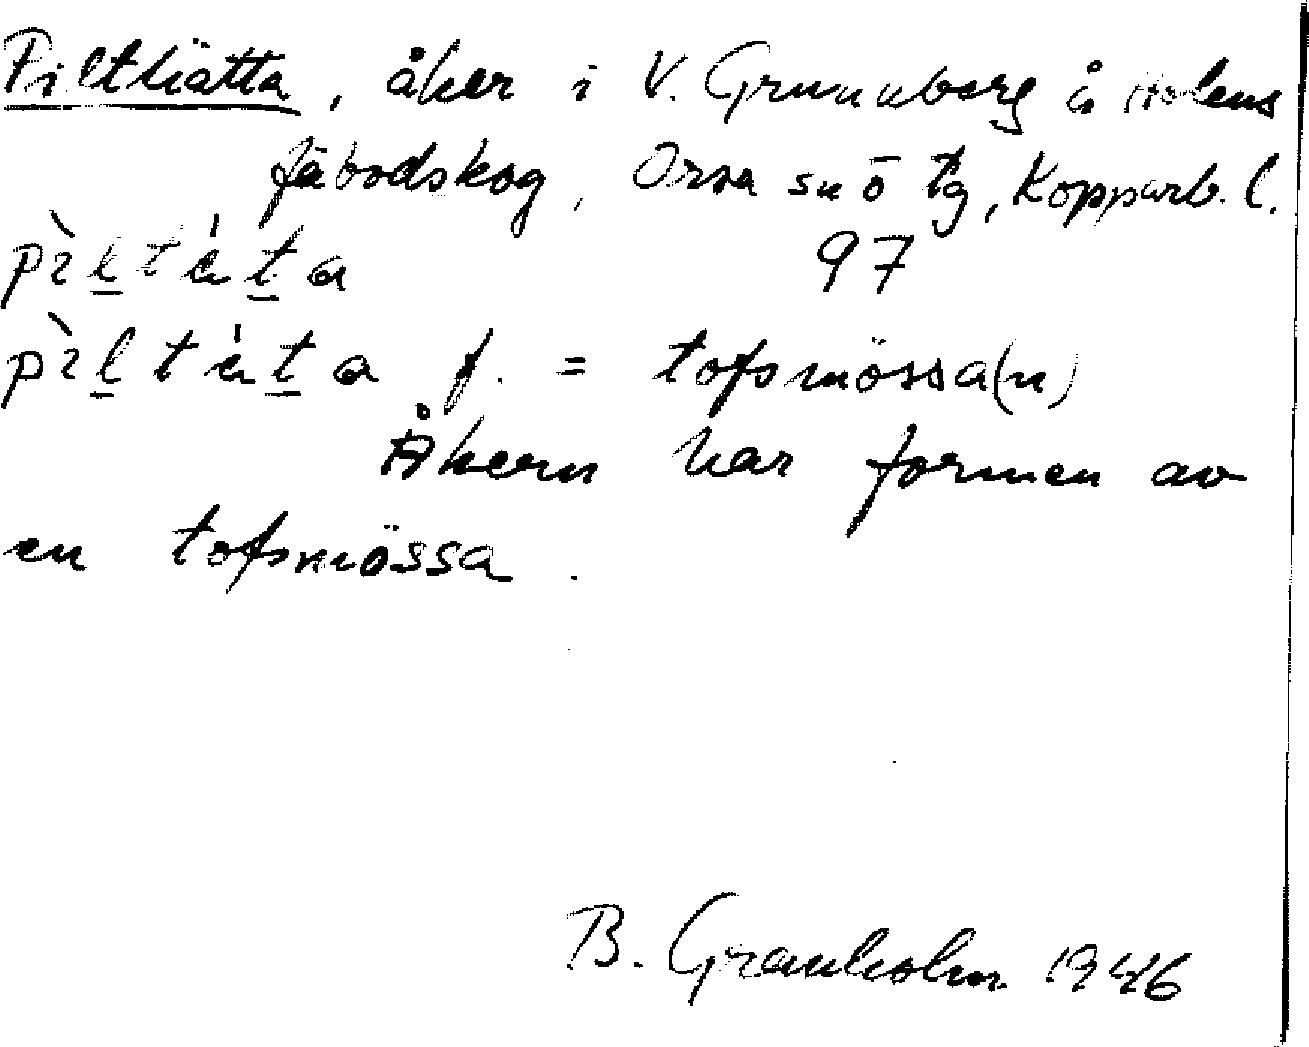 Piltliätta, åker i V. Grunuberg å Holens
fäbodskog, Orsa sn ö tg, Kopparb. l.
97
f. = tofsmössa(n)
Åkern har formen av
en tofsmössa.
B. Granholm 1946